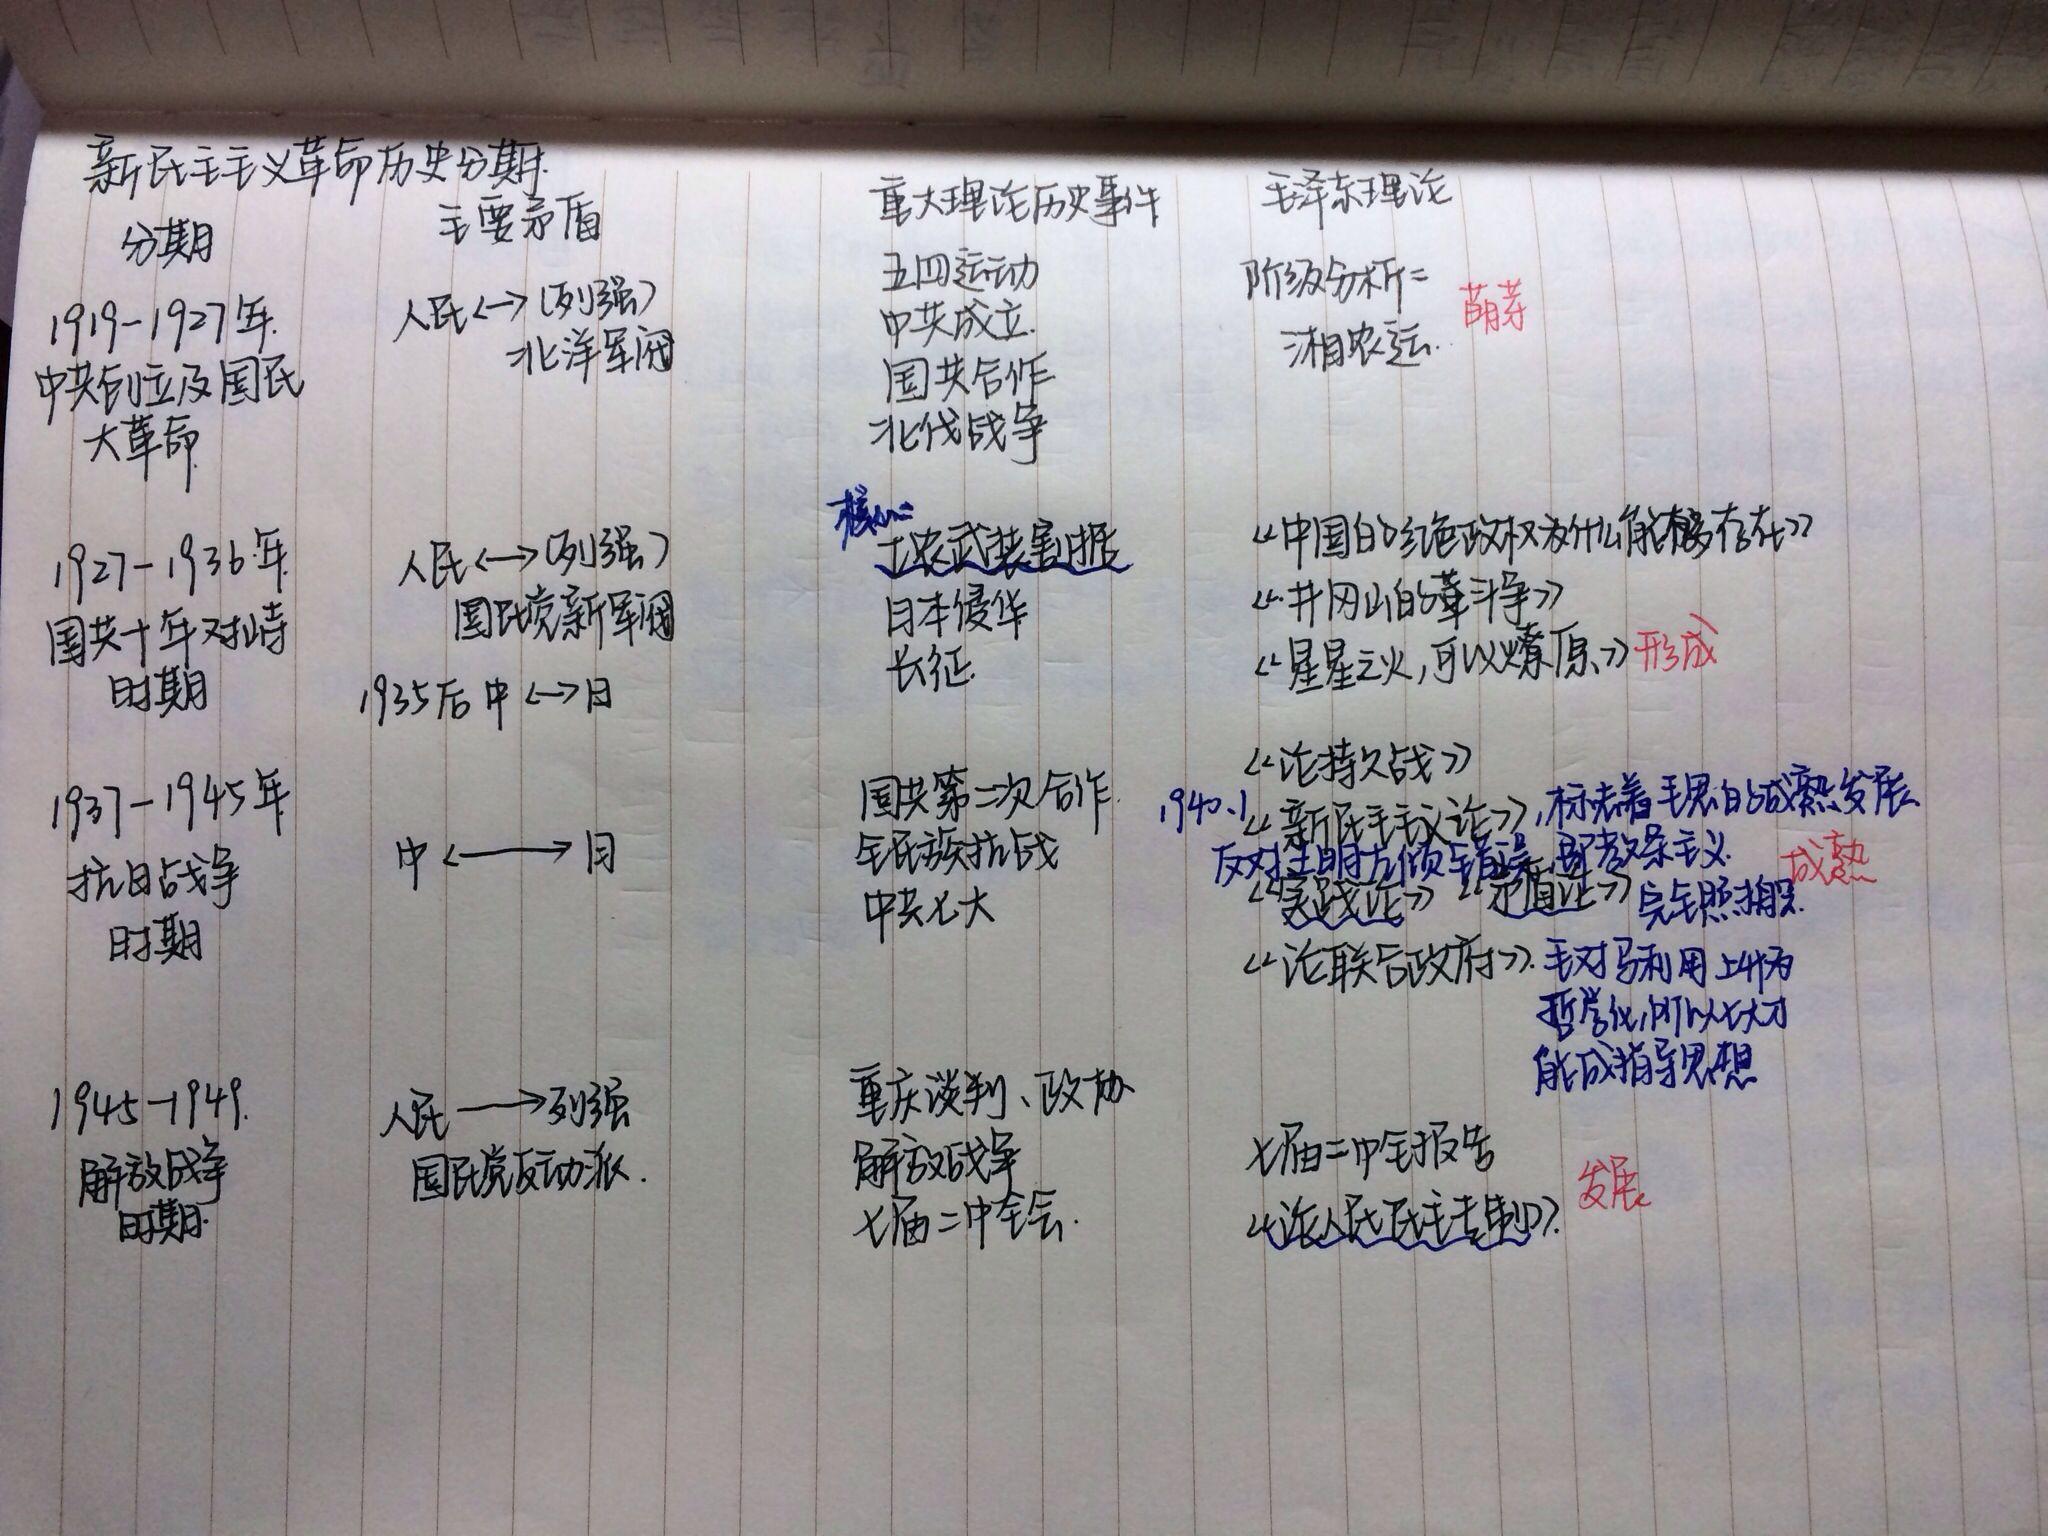 新民主主义革命历史分期.
分期 主要矛盾 重大理论历史事件 毛泽东理论
1919-1927年.
中共创立及国民
大革命
人民<->(列强)
北洋军阀
五四运动
中共成立.
国共合作
北伐战争
阶级分析=
湘农运.
萌芽
1927-1936年.
国共十年对峙
时期
人民<->(列强)
国民党新军阀
1935后 中<->日
核心:
工农武装割据
日本侵华
长征
《中国的红色政权为什么能够存在》
《井冈山的斗争》
《星星之火,可以燎原》 形成
1937-1945年
抗日战争
时期
中<->日
国共第二次合作
全民族抗战
中共七大
《论持久战》
1940.1《新民主主义论》,标志着毛思的成熟发展
反对王明左倾错误,即教条主义
《实践论》《矛盾论》完全照搬. 成熟
《论联合政府》. 毛对马利用上升为
哲学化,所以七大才
能成指导思想
1945-1949.
解放战争
时期.
人民->列强
国民党反动派.
重庆谈判、政协
解放战争
七届二中全会.
七届二中全报告
《论人民民主专制》. 发展